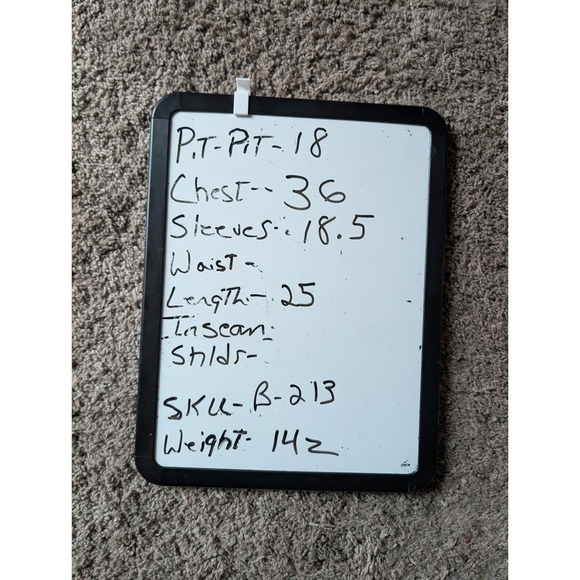 Pit-Pit-18
Chest-- 36
Sleeves-. 18.5
Waist-
Length- 25
Inseam-
Shlds-
SKU- B-213
Weight- 14z